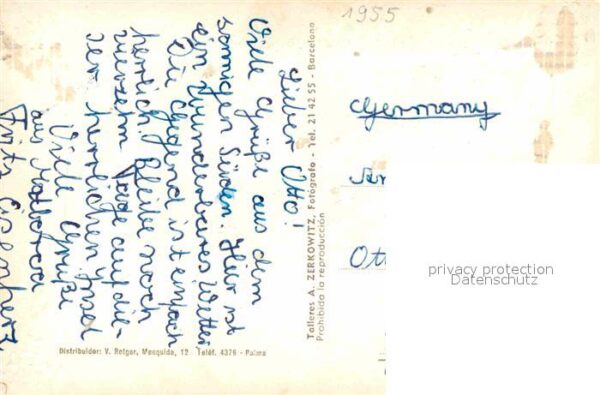 1955
Lieber Otto!
Viele Grüße aus dem
sonnigen Süden. Hier ist
ein wunderbares Wetter
Die Gegend ist einfach
herrlich. Bleibe noch
vierzehn Tage auf die-
ser herrlichen Insel
Viele Grüße
aus Mallorca
Fritz Eisenherz
Talleres A. ZERKOWITZ, Fotógrafo - Tel. 21 42 55 - Barcelona
Prohibida la reproducción
Distribuidor: V. Rotger, Mesquida, 12 Teléf. 4376 - Palma
Germany
Ott
privacy protection
Datenschutz